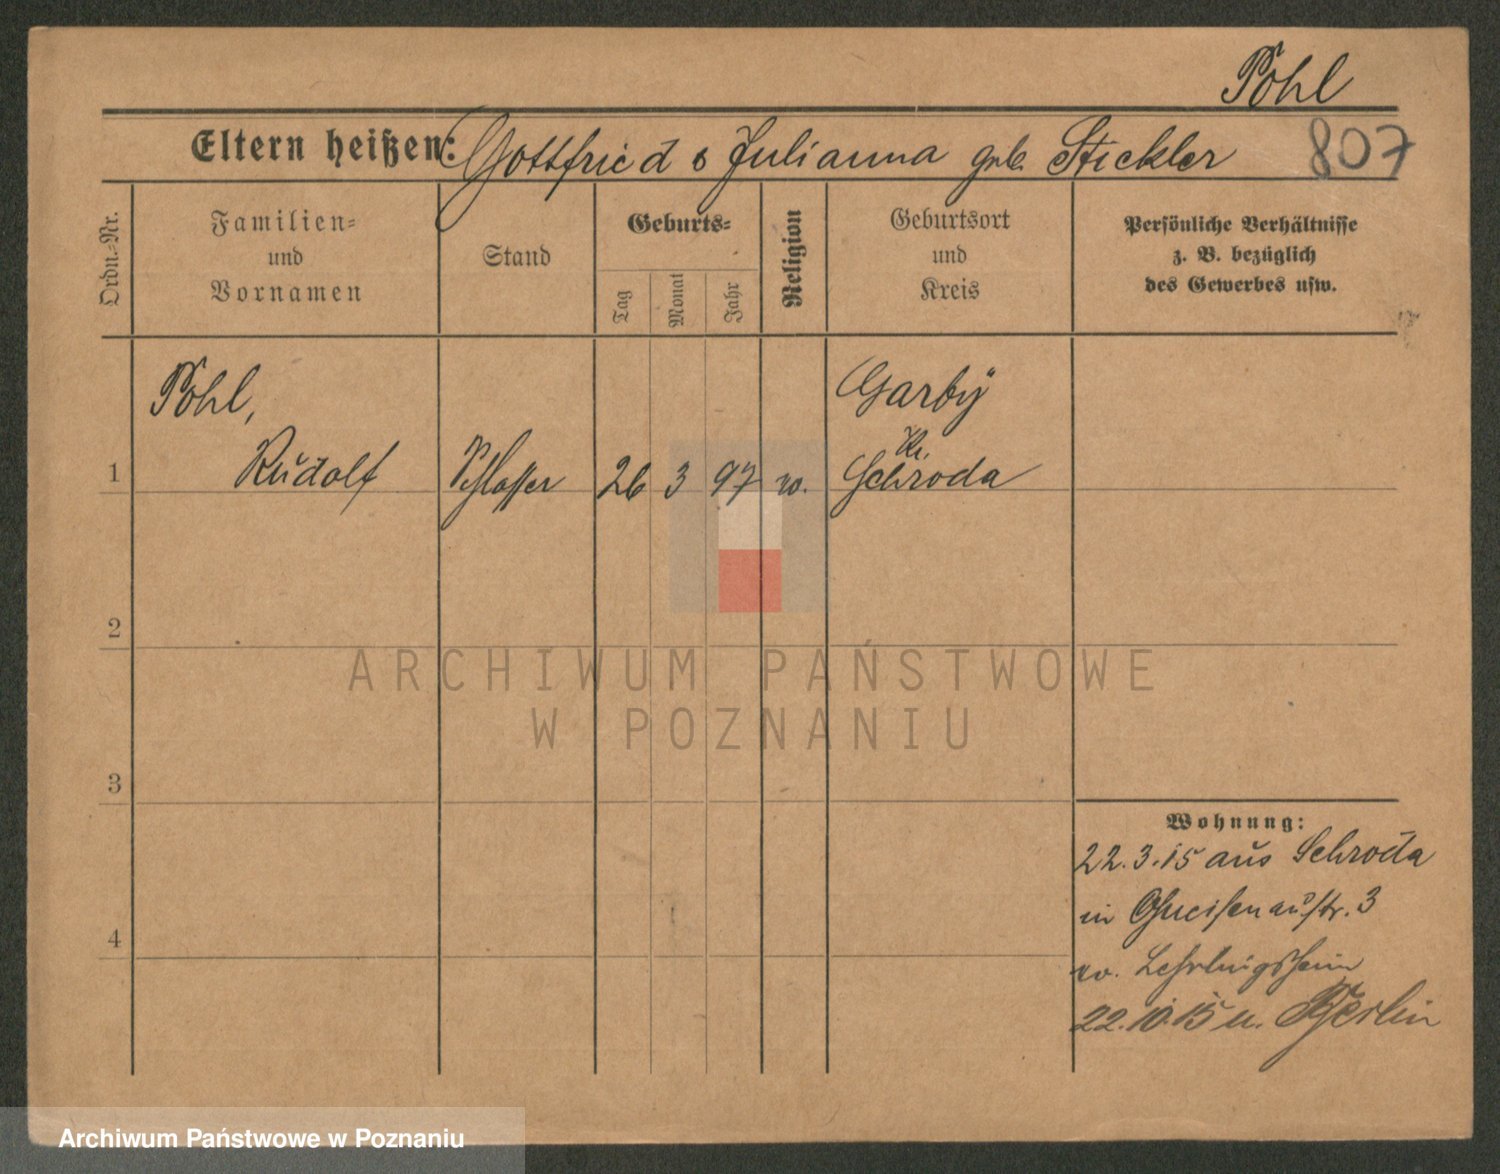 Pohl
Eltern heißen: Gottfried & Julianna geb. Stickler
807
Ordn.-Nr.
Familien-
und
Vornamen
Stand
Geburts-
Tag
Monat
Jahr
Religion
Geburtsort
und
Kreis
Persönliche Verhältnisse
z. B. bezüglich
des Gewerbes usw.
1
Pohl,
Rudolf
Schlosser
26
3
97
ev.
Garby
Kr.
Schroda
2
3
4
Wohnung:
22.3.15 aus Schroda
in Gneisenaustr. 3
ev. Lehrlingsheim
22.10.15 n. Berlin
ARCHIWUM PAŃSTWOWE
W POZNANIU
Archiwum Państwowe w Poznaniu